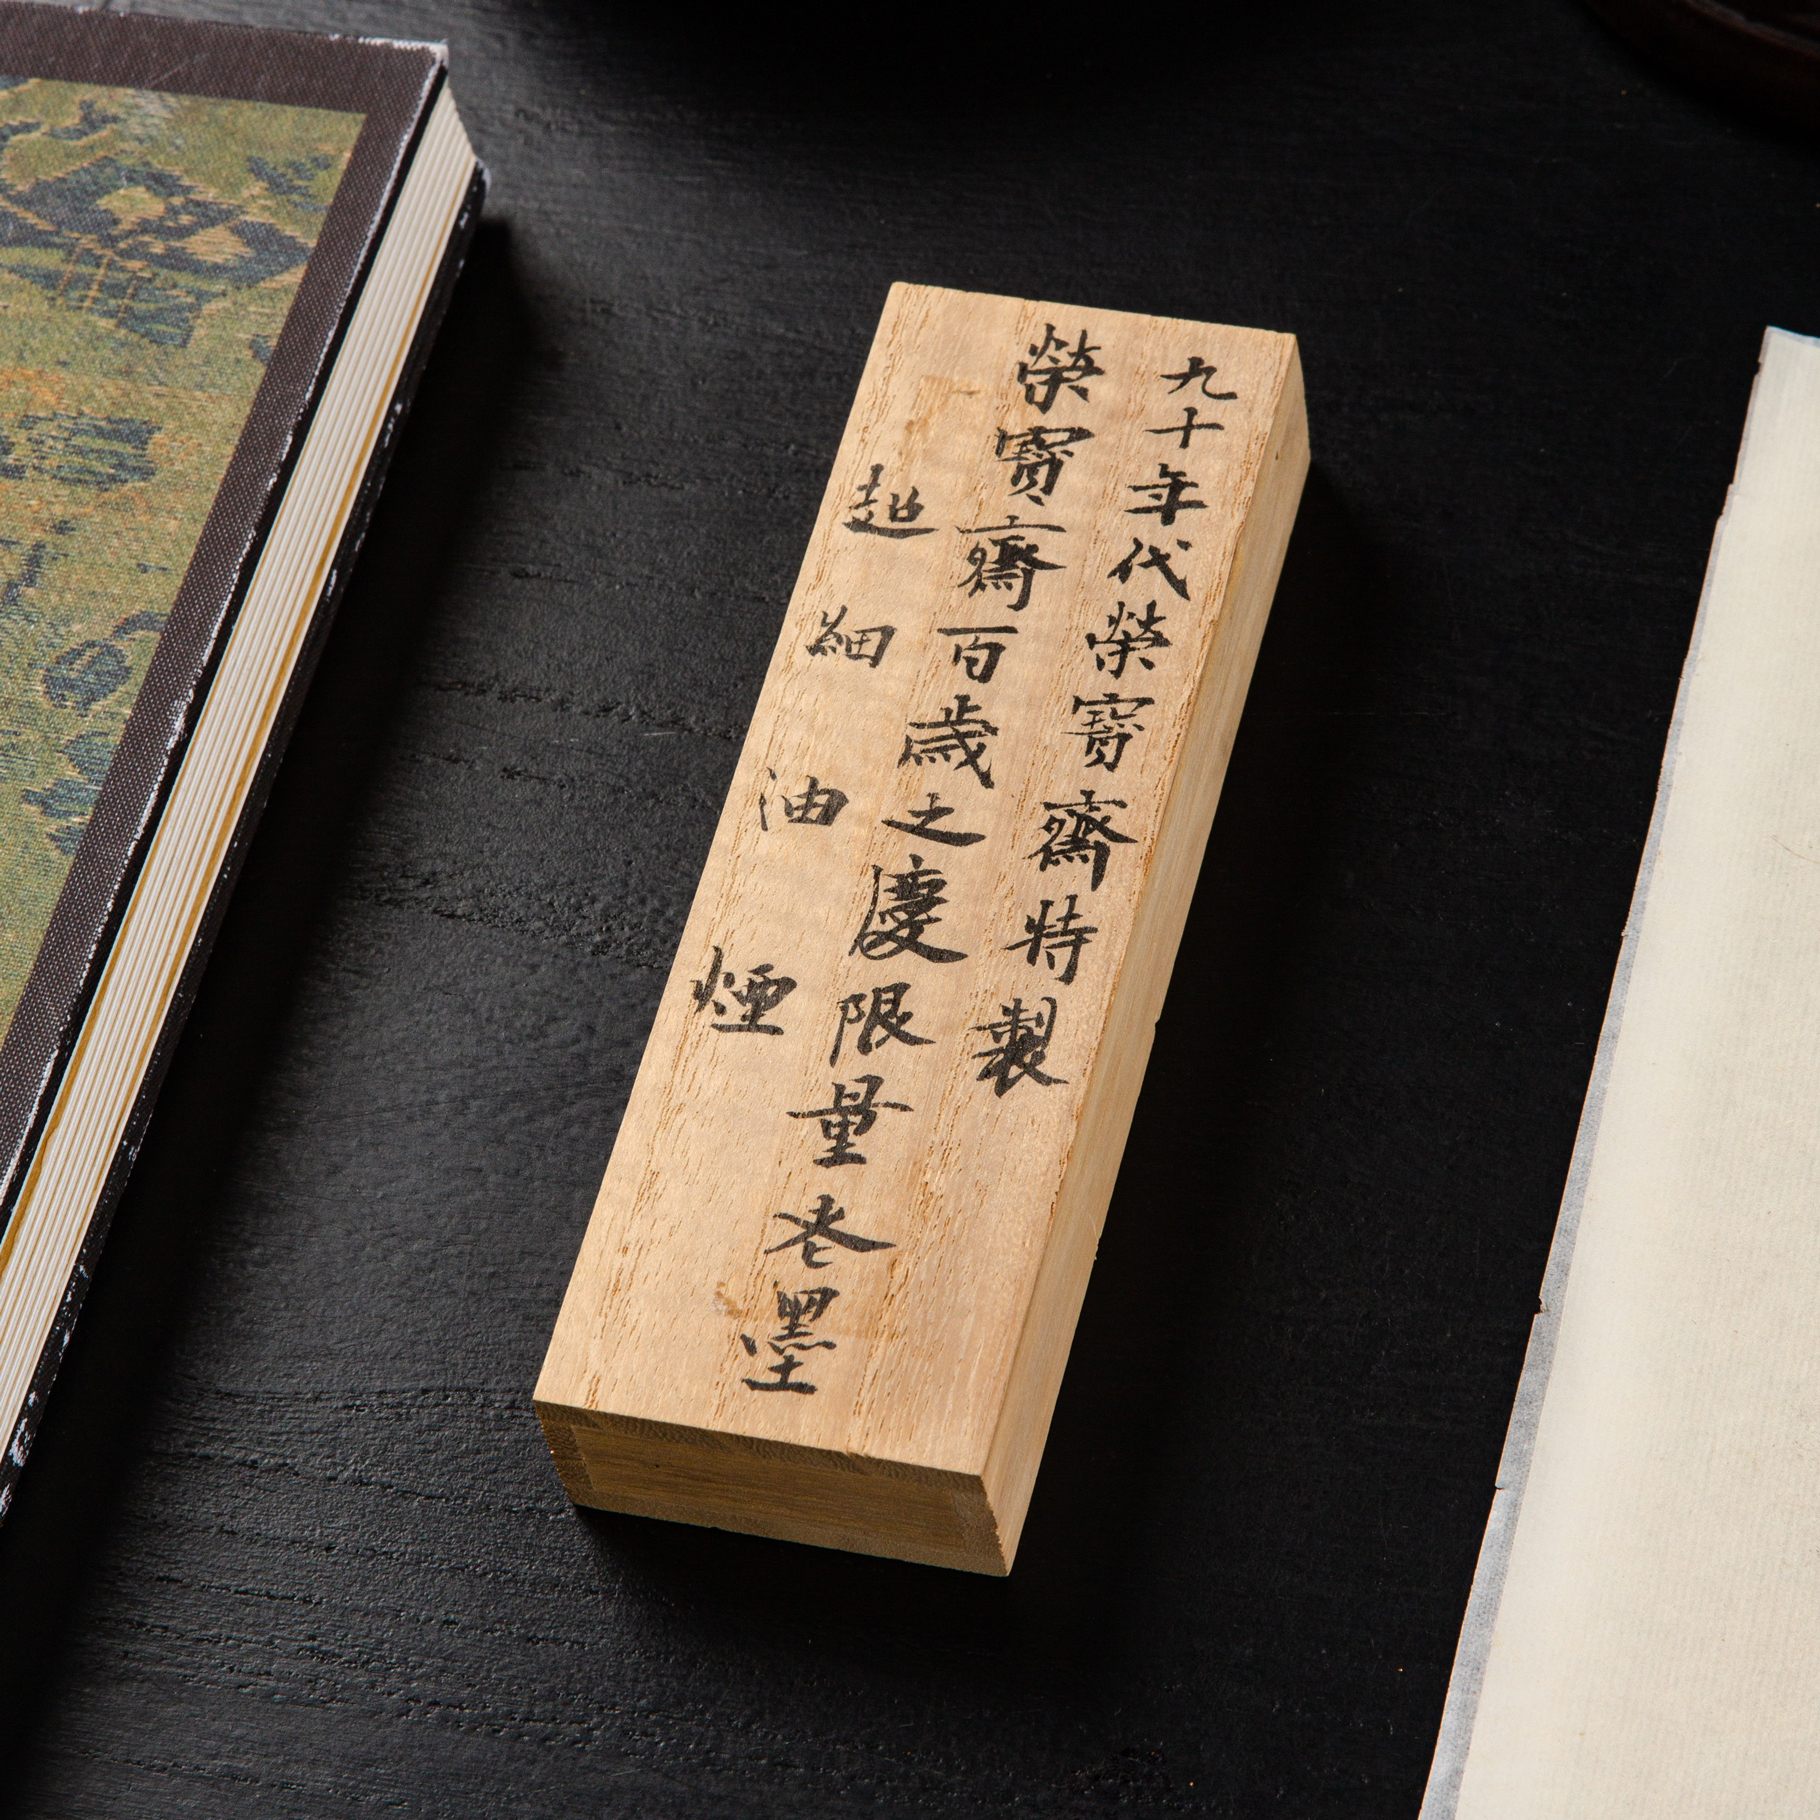 九十年代榮寶齋特製
榮寶齋百歲之慶限量老墨
超細油煙